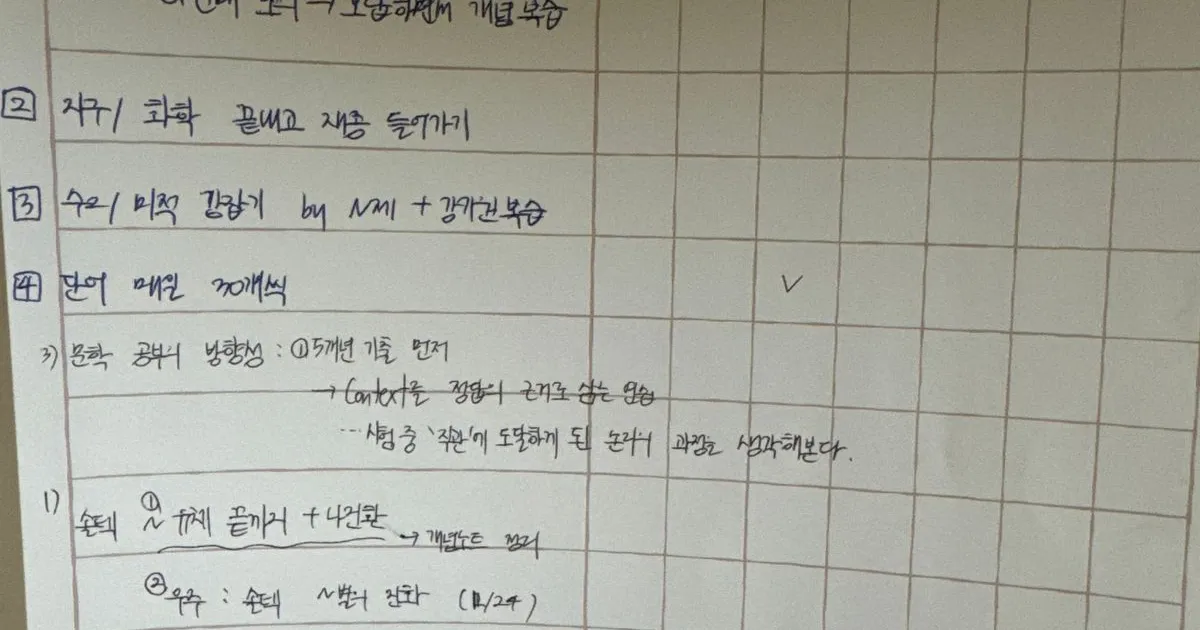 → 오답하면서 개념복습
2 지구/ 화학 끝내고 재종 들어가기
3 수2/ 미적 감잡기 by N제 + 강기원복습
4 단어 매일 30개씩
3) 문학 공부의 방향성 : ① 5개년 기출 먼저
→ Context를 정답의 근거로 삼는 연습
… 시험 중 '직관'에 도달하게 된 논리의 과정을 생각해본다.
1) 솔텍 ① ~ 유체 끝까지 + 나선환
→ 개념노트 정리
② 우주 : 솔텍 ~별의 진화 (12/24)